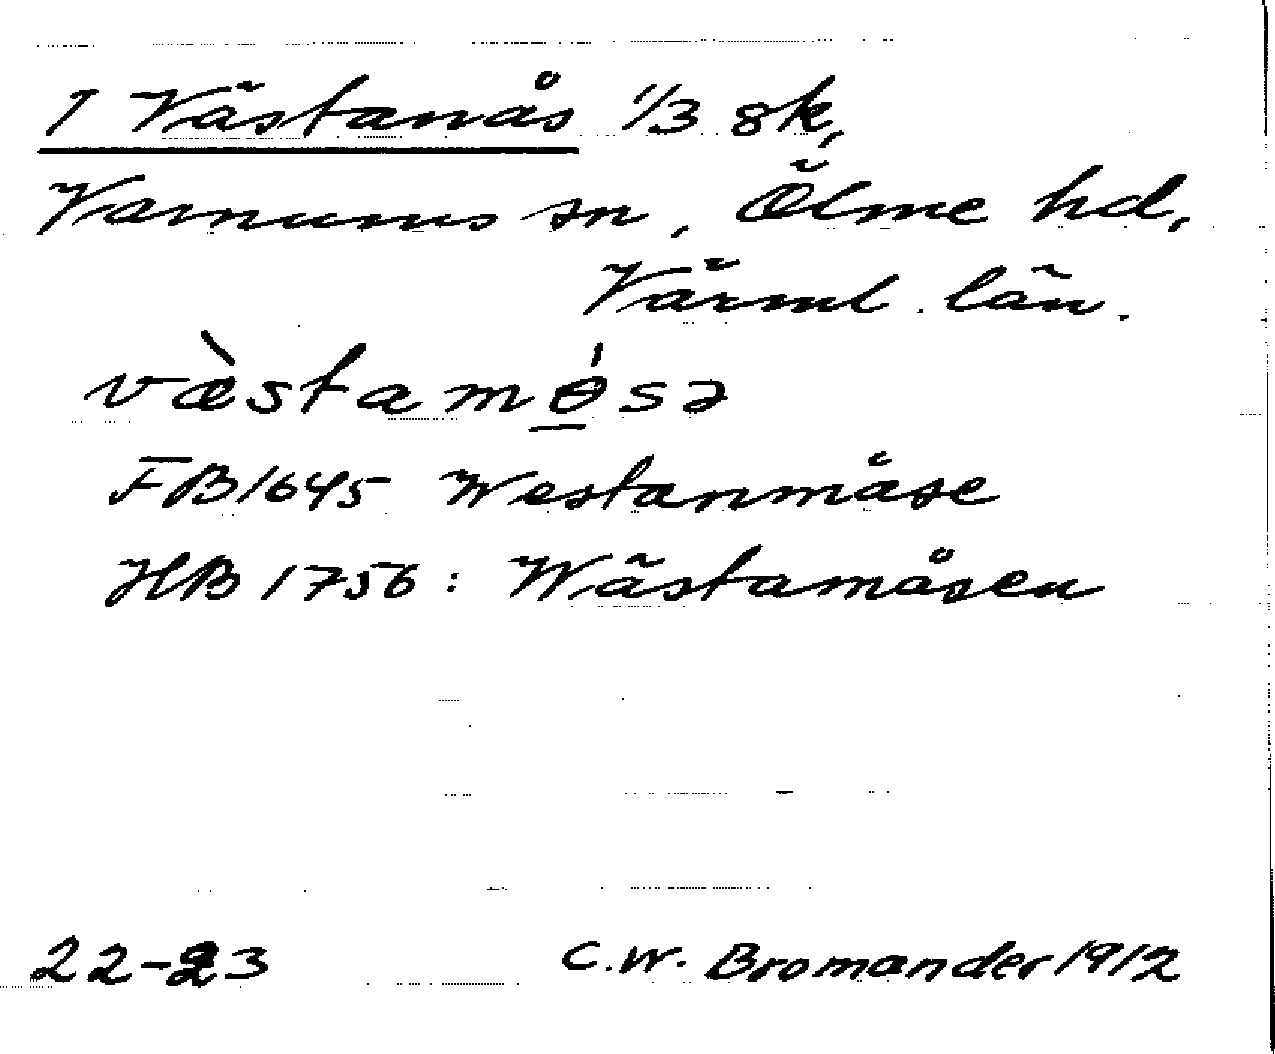 1 Västanås 1/3 sk,
Varnums sn, Ölme hd,
Värml. län.
væ̀stamɵ̲́sə
FB 1645 Westanmåse
HB 1756: Wästamåsen
22-23 C.W. Bromander 1912